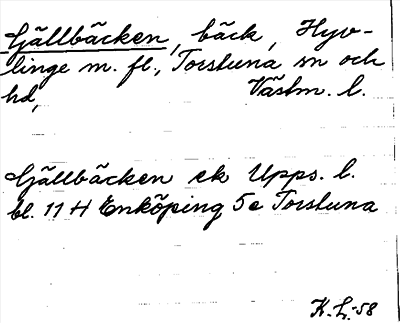 Gällbäcken, bäck, Hyv-
linge m. fl., Torstuna sn och
hd, Västm. l.
Gjällbäcken ek Upps. l.
bl. 11 H Enköping 5e Torstuna
K. L.-58